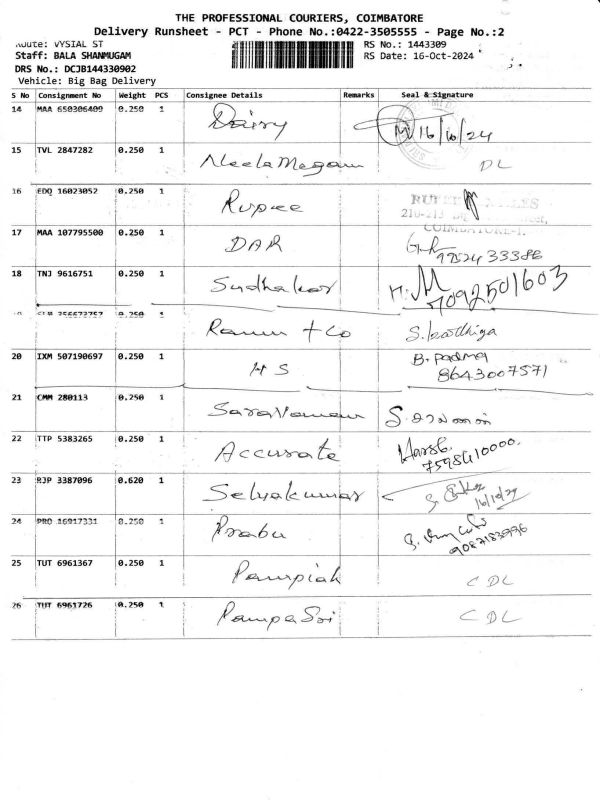 THE PROFESSIONAL COURIERS, COIMBATORE
Delivery Runsheet - PCT - Phone No.:0422-3505555 - Page No.:2
Route: VYSIAL ST RS No.: 1443309
Staff: BALA SHANMUGAM RS Date: 16-Oct-2024
DRS No.: DCJB144330902
Vehicle: Big Bag Delivery
S No Consignment No Weight PCS Consignee Details Remarks Seal & Signature
14 MAA 650306409 0.250 1 Dairy 16/10/24
15 TVL 2847282 0.250 1 Neela Megam DL
16 EDQ 16023052 0.250 1 Rupee
COIMBATORE-1.
17 MAA 107795500 0.250 1 DAR
18 TNJ 9616751 0.250 1 Sudhakar M 7092501603
0.250 1 Ramu + Co S. karthiga
20 IXM 507190697 0.250 1 H S B. Padma
8643007571
21 CMM 280113 0.250 1 Saravanan
22 TTP 5383265 0.250 1 Accurate
23 RJP 3387096 0.620 1 Selvakumar
16/10/24
24 PRO 16917331 0.250 1 Prabu
25 TUT 6961367 0.250 1 Pampiah CDL
26 TUT 6961726 0.250 1 Pampa Sri CDL